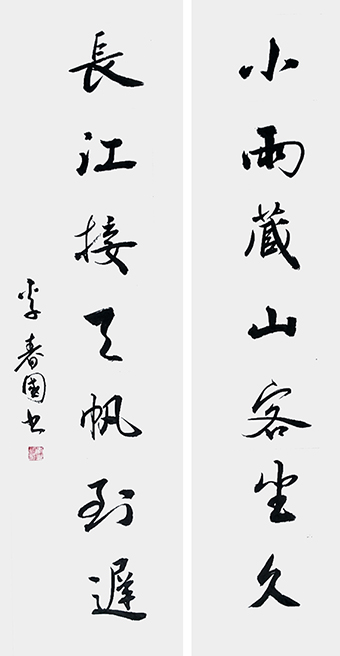 小雨藏山客坐久
長江接天帆到遲
李春國书